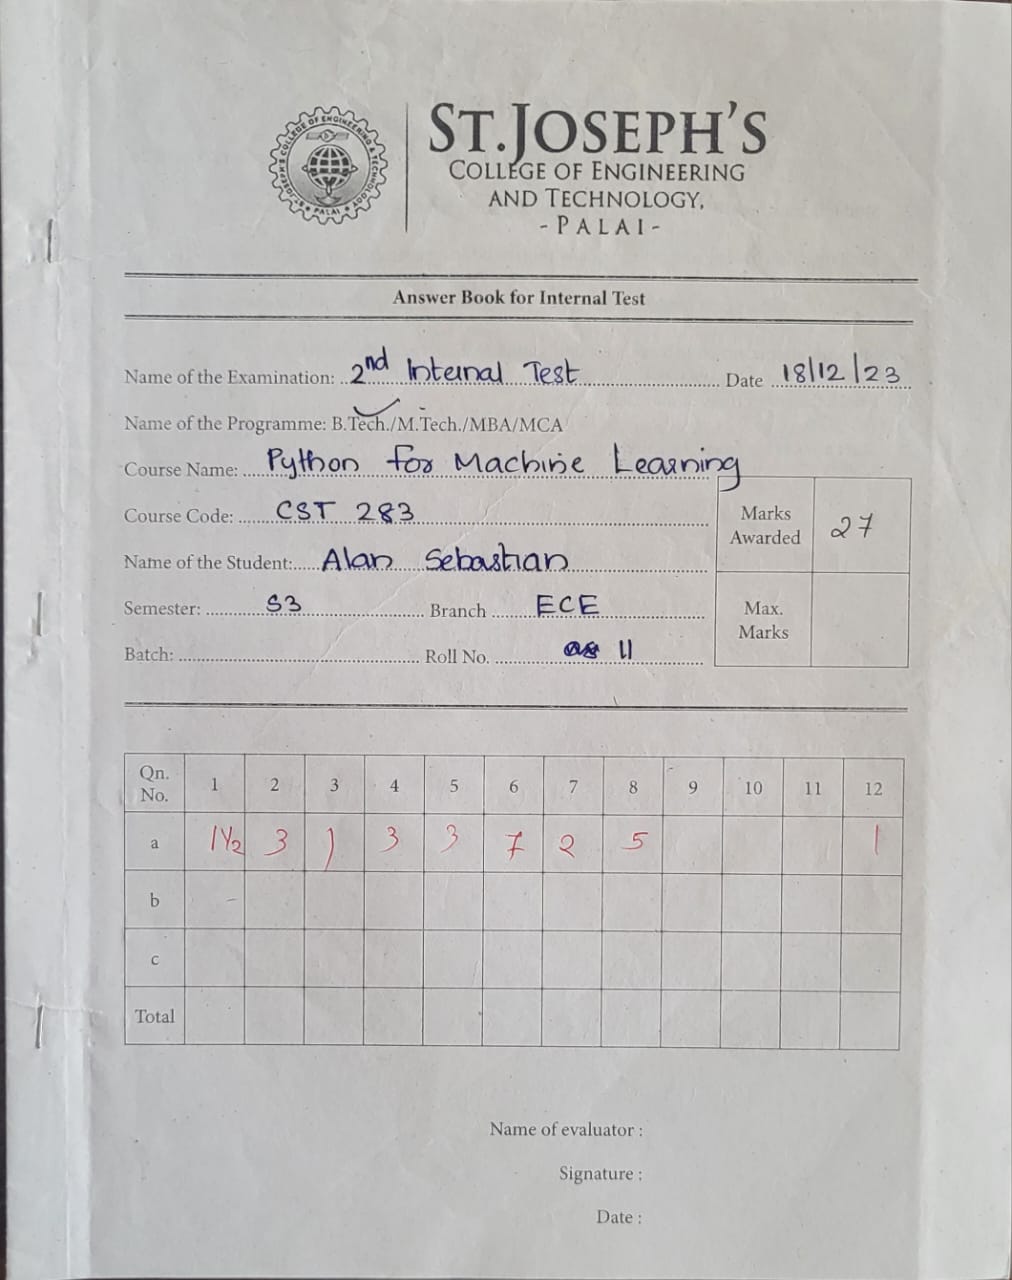 ST. JOSEPH'S COLLEGE OF ENGINEERING & TECHNOLOGY
★ PALAI ★
ST.JOSEPH'S
COLLEGE OF ENGINEERING
AND TECHNOLOGY,
- PALAI -
Answer Book for Internal Test
Name of the Examination: 2nd Internal Test Date 18/12/23
Name of the Programme: B.Tech./M.Tech./MBA/MCA
Course Name: Python for Machine Learning
Course Code: CST 283
Marks Awarded 27
Name of the Student: Alan Sebastian
Semester: S3 Branch ECE
Max. Marks
Batch: Roll No. 11
Qn. No. 1 2 3 4 5 6 7 8 9 10 11 12
a 1½ 3 1 3 3 7 2 5 1
b -
c
Total
Name of evaluator :
Signature :
Date :